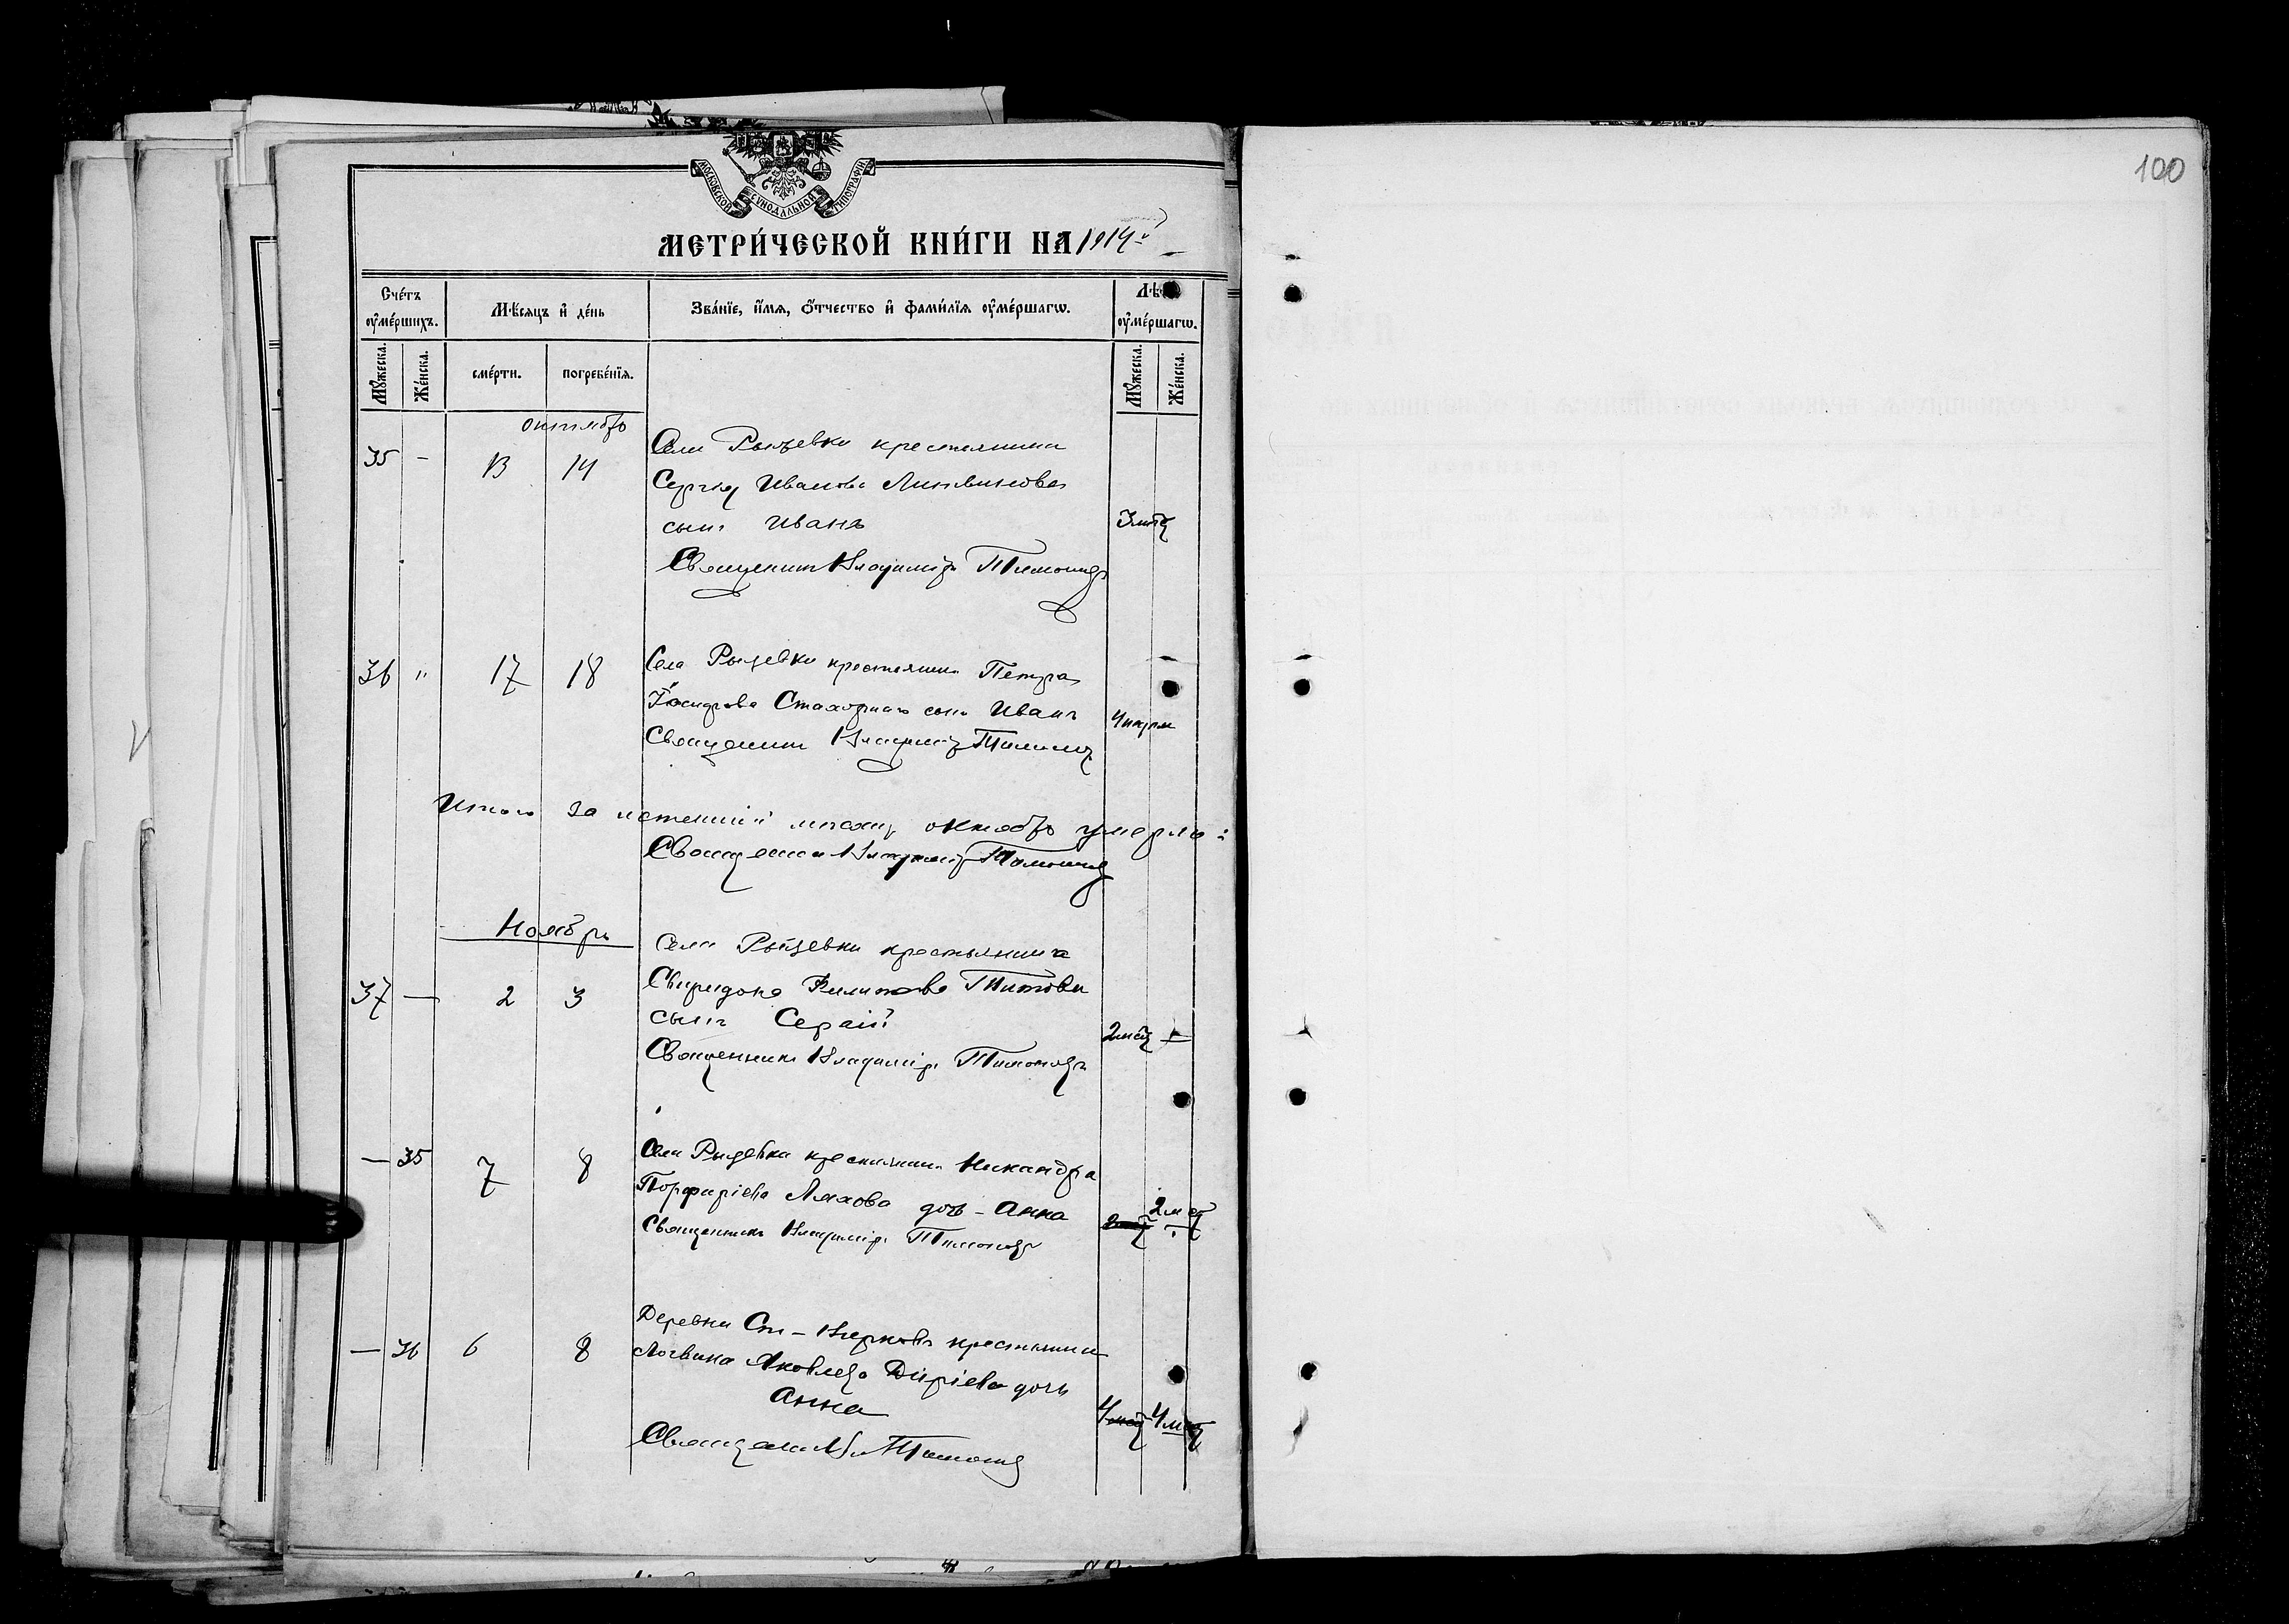 100
МОСКОВСКОЙ СѴНОДАЛЬНОЙ ТИПОГРАФІИ
МЕТРИ́ЧЕСКОЙ КНИ́ГИ НА 1914 г
Сче́тъ оу҆ме́ршихъ.
Мѣ́сяцъ и҆ де́нь
Зва́нїе, и҆́мѧ, ѻ҆́тчество и҆ фами́лїѧ оу҆ме́ршагѡ.
Лѣ́та оу҆ме́ршагѡ.
Мꙋ́жеска.
Же́нска.
сме́рти.
погребе́нїѧ.
Мꙋ́жеска.
Же́нска.
октябрь
35 - 13 14
Села крестьянина
Сергѣя Иванова Литвинова
сынъ Иванъ
3 мѣсц
Священникъ Владиміръ Тимоновъ
36 " 17 18
Села крестьянина Петра
сынъ Иванъ
4 недѣл
Священникъ Владиміръ Тимоновъ
Итого за истекшій мѣсяцъ октябрь умерло:
Священникъ Владиміръ Тимоновъ
Ноябрь
37 — 2 3
Села крестьянина
Свиридона Филипова Титова
сынъ Сергій
2 мѣсц
Священникъ Владиміръ Тимоновъ
— 35 7 8
Села крестьянина Никандра
Порфиріева Ляхова дочь - Анна
2 мѣсц
Священникъ Владиміръ Тимоновъ
— 36 6 8
Деревни Ст - крестьянина
Логвина Яковлева дочь
Анна
4 мѣсц 4 мѣсц
Священникъ Вл Тимоновъ